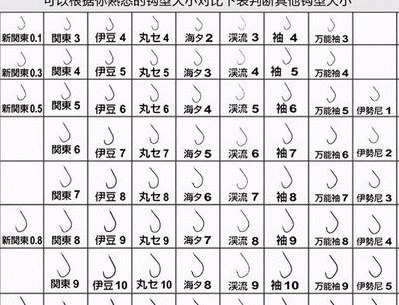 可以根据你熟悉的钩型大小对比下表判断其他钩型大小
新関東0.1 関東3 伊豆4 丸セ4 海夕2 渓流3 袖4 万能袖3
新関東0.3 関東4 伊豆5 丸セ5 海夕3 渓流4 袖5 万能袖4
新関東0.5 関東5 伊豆6 丸セ6 海夕4 渓流5 袖6 万能袖5 伊勢尼1
関東6 伊豆7 丸セ7 海夕5 渓流6 袖7 万能袖6 伊勢尼2
関東7 伊豆8 丸セ8 海夕6 渓流7 袖8 万能袖7 伊勢尼3
新関東0.8 関東8 伊豆9 丸セ9 海夕7 渓流8 袖9 万能袖8 伊勢尼4
関東9 伊豆10 丸セ10 海夕8 渓流9 袖10 万能袖9 伊勢尼5